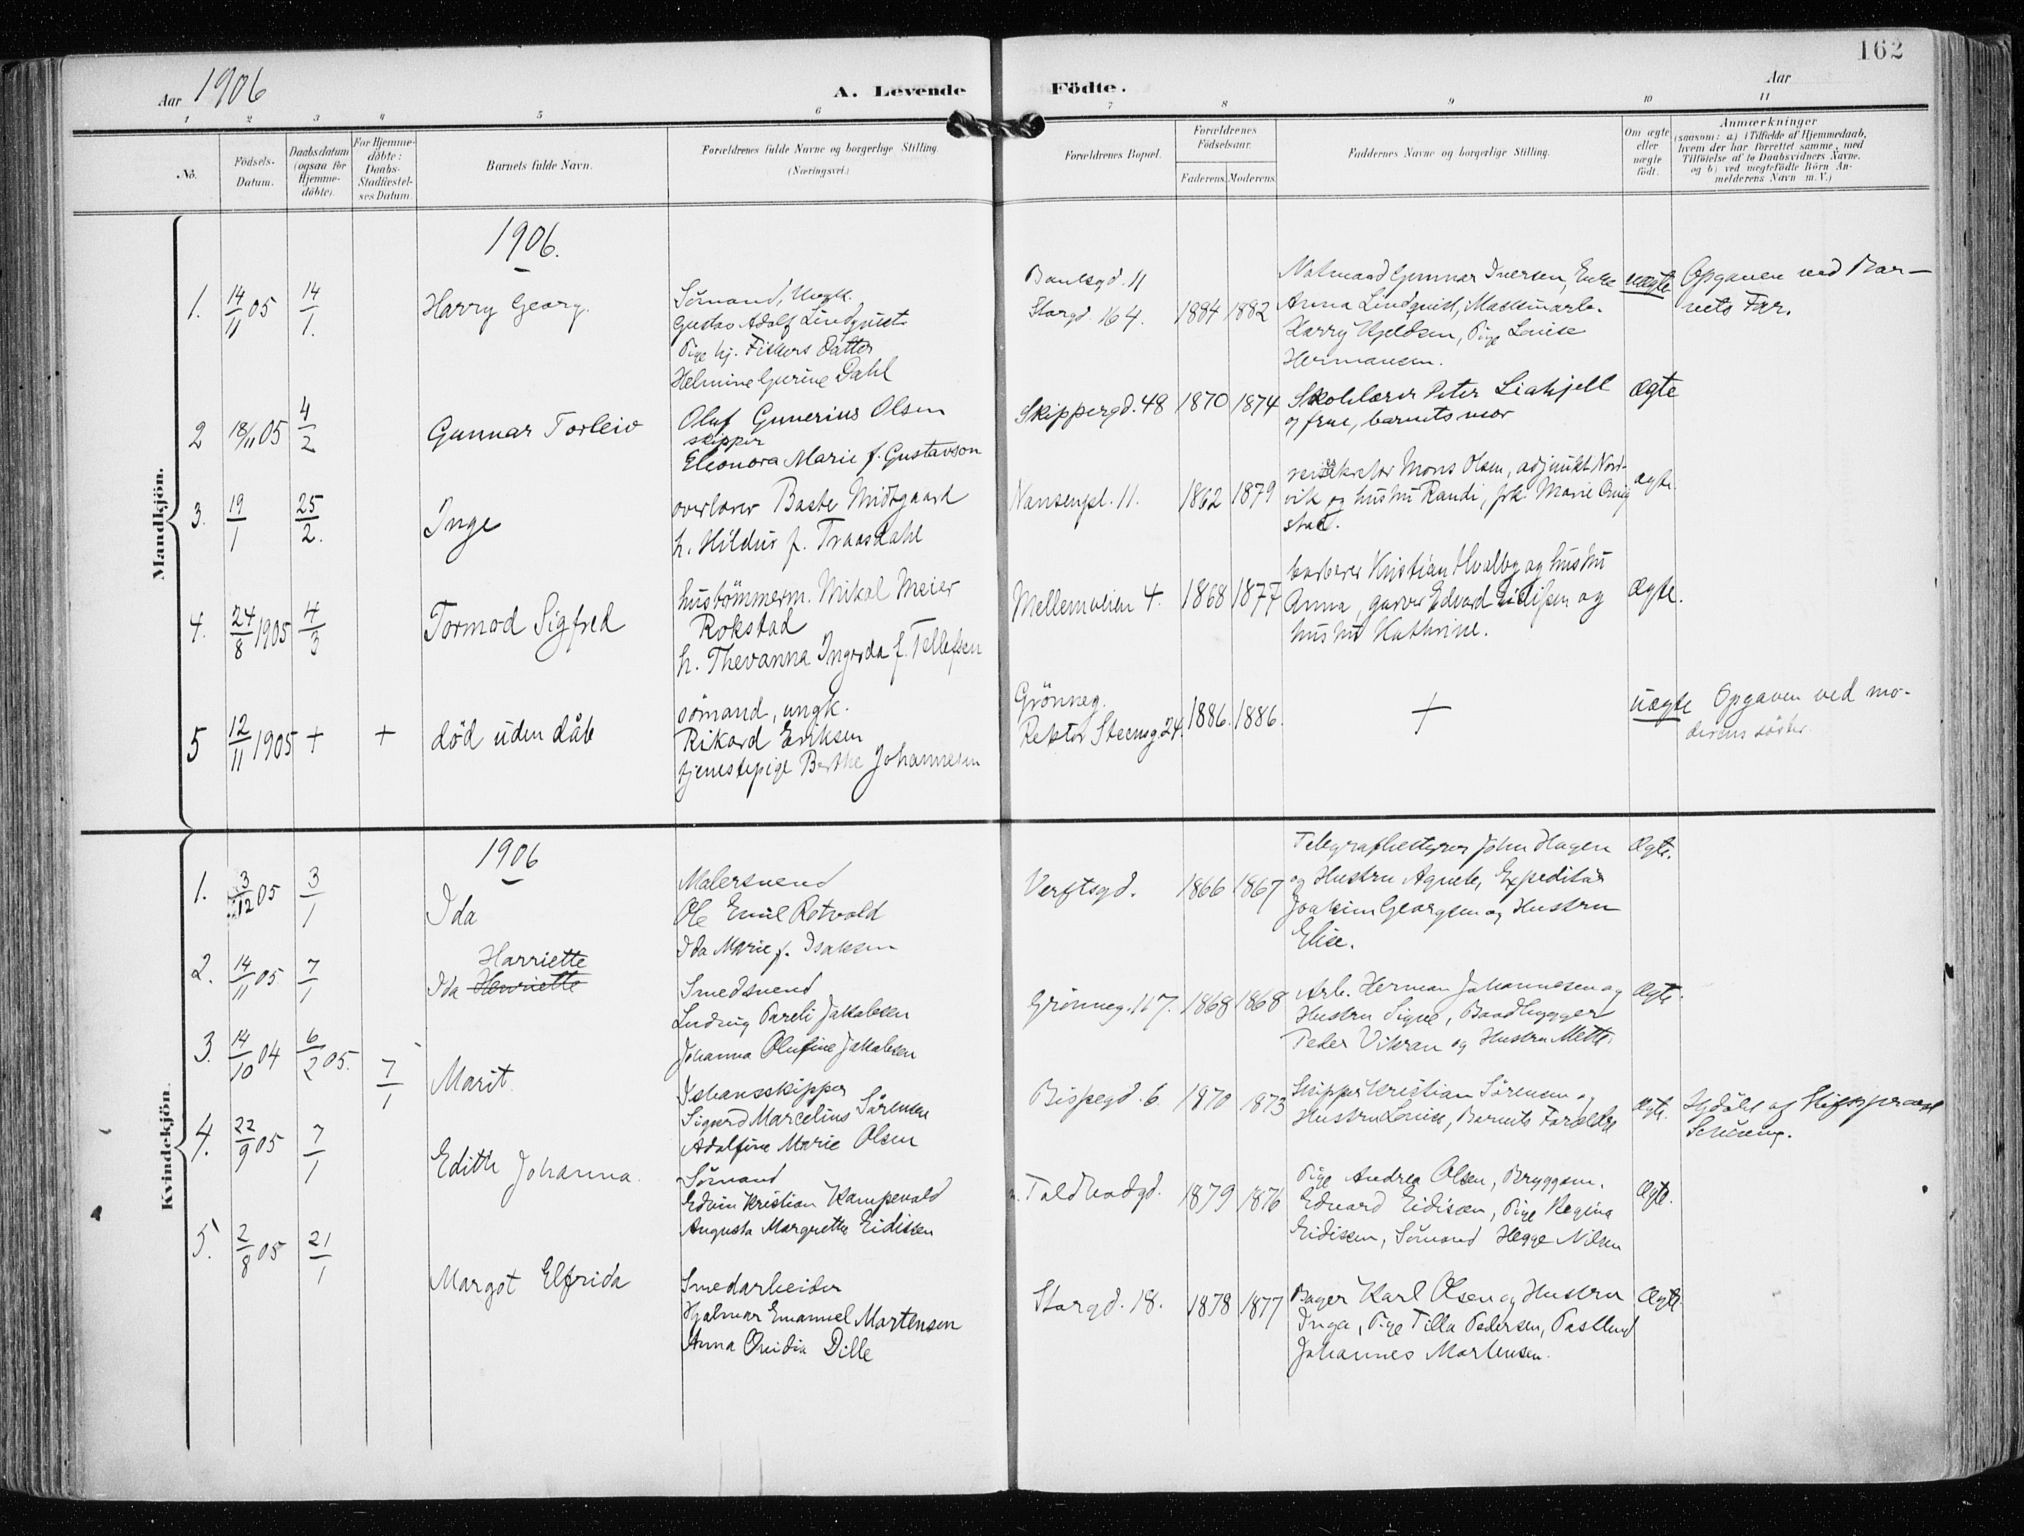 162
Aar 1906
A. Levende Födte.
Aar
1 2 3 4 5 6 7 8 9 10 11
No.
Födsels-Datum.
Daabsdatum (ogsaa for Hjemme-döbte).
For Hjemme-döbte: Daabs-Stadfæstel-ses Datum.
Barnets fulde Navn.
Forældrenes fulde Navne og borgerlige Stilling.
(Næringsvei.)
Forældrenes Bopæl.
Forældrenes Födselsaar.
Faderens. Moderens.
Faddernes Navne og borgerlige Stilling.
Om ægte eller uægte födt.
Anmærkninger
(saasom: a) i Tilfælde af Hjemmedaab,
hvem der har forrettet samme, med
Tilföielse af to Daabsvidners Navne,
og b) ved uægtefödte Börn An-
melderens Navn m. V.)
Mandkjön.
1906.
1. 14/11 05 14/1. Harry Georg.
Sømand, Ungk.
Gustav Adolf Lindquist
Pige hj. Fiskers Datter
Helmine Gurine Dahl
Bankgd. 11
Storgd. 164. 1884 1882
Gunnar Iversen, Enke
Anna Lindquist,
Harry Kjeldsen, Pige Louise
Hermansen.
uægte
Opgaven ved Bar-
nets Far.
2 18/11 05 4/2 Gunnar Torleiv
Oluf Gunerius Olsen
skipper
Eleonora Marie f. Gustavson
Skippergd. 48 1870 1874
Skolelærer Peter Liakjell
og frue, barnets mor
Ægte
3. 19/1 25/2. Inge
overlærer Baste Midtgaard
h. Hildur f. Traasdahl
Nansenpl. 11. 1862 1879
Mons Olsen, adjunkt Nord-
vik og hustru Randi, frk. Marie Qvig
stad.
ægte.
4. 24/8 1905 4/3 Tormod Sigfred
hustömmerm. Mikal Meier
Rokstad
h. Thevanna Ingerda f. Tellefsen
Mellemveien 4. 1868 1877
barberer Kristian Hvalby og hustru
Anna, garver Edvard Eidissen og
hustru Kathrine.
Ægte.
5 12/11 1905 + + död uden dåb
sömand, ungk.
Rikard Eriksen
tjenestepige Berthe Johannesen
Grönneg.
Rektor Steensg. 24. 1886. 1886.
+
uægte
Opgaven ved mo-
derens söster.
Kvindekjön.
1906
1. 3/12 05 3/1 Ida
Malersvend
Ole Emil Rotvold
Ida Marie f. Isaksen
Verftsgd. 1866 1867
Telegrafbestyrer John Hagen
og Hustru Agnete, Expeditør
Joakim Georgsen og Hustru
Elise.
Ægte.
2. 14/11 05 7/1
Harriette
Ida Henriette
Smedsvend
Ludvig Pareli Jakobsen
Johanna Olufine Jakobsen
Grönneg. 117. 1868 1868
Arb. Herman Johannesen og
Hustru Signe, Baadbygger
Peder Vikran og Hustru Mette.
Ægte.
3. 14/10 04 6/2 05. 7/1 Marit.
Ishavsskipper
Sigurd Marcelius Sørensen
Adolfine Marie Olsen
Bispegd. 6 1870 1873
Skipper Kristian Sørensen og
Hustru Louise, Barnets Forældre
Ægte.
Hjdöbt af Stiftsprovst
4. 22/9 05 7/1 Edith Johanna.
Sømand
Edvin Kristian Kampevold
Augusta Margrethe Eidissen
Toldbodgd. 1879 1876
Pige Andrea Olsen, Bryggem.
Edvard Eidissen, Pige Regina
Eidissen, Sømand Hegge Nilsen
Ægte.
5. 2/8 05 21/1 Margot Elfrida
Smedarbeider
Hjalmar Emanuel Mortensen
Anna Ovidia Dille
Storgd. 18. 1878 1877
Bager Karl Olsen og Hustru
Inga, Pige Tilla Pedersen,
Johannes Mortensen.
Ægte.